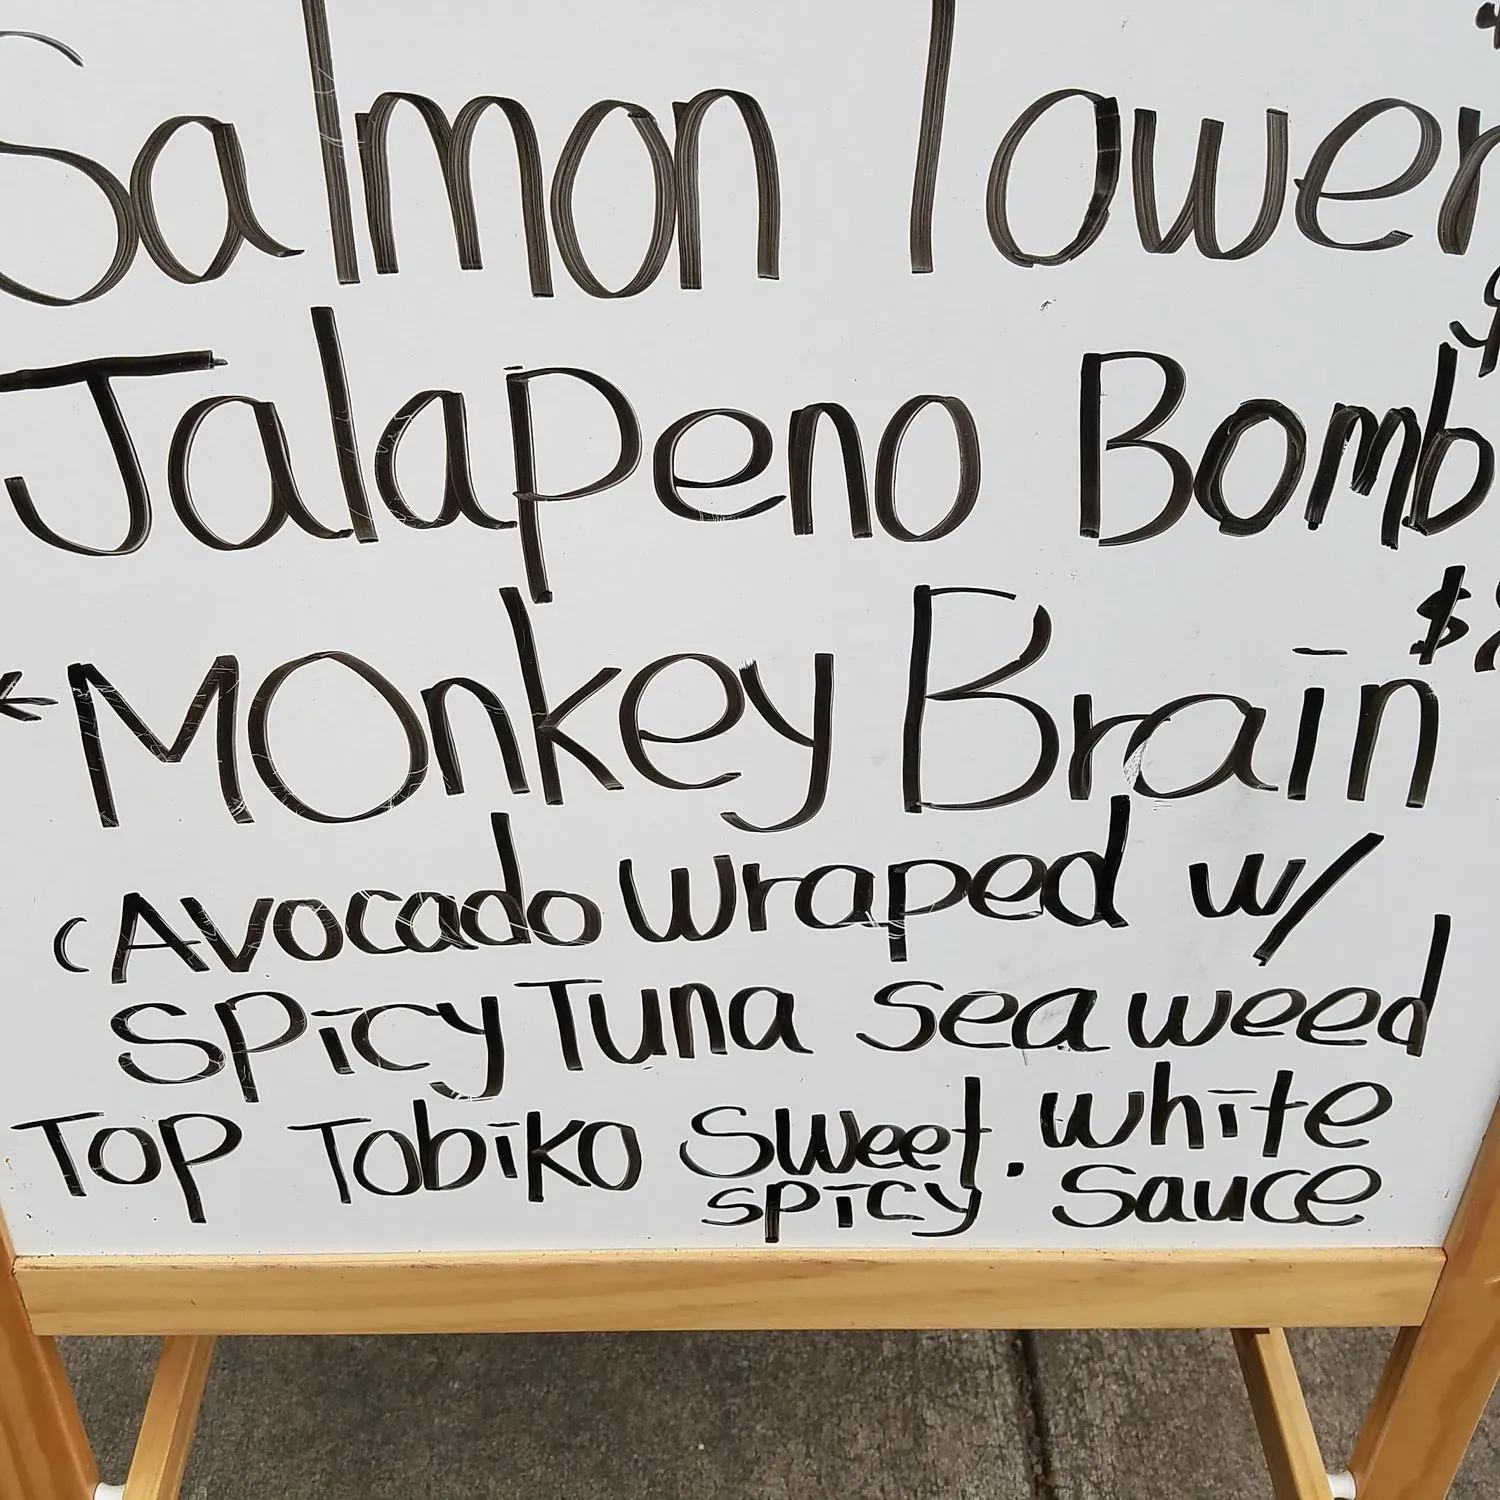 Salmon Tower
Jalapeno Bomb
*Monkey Brain
(Avocado Wraped w/
Spicy Tuna Seaweed
Top Tobiko Sweet. White
spicy Sauce